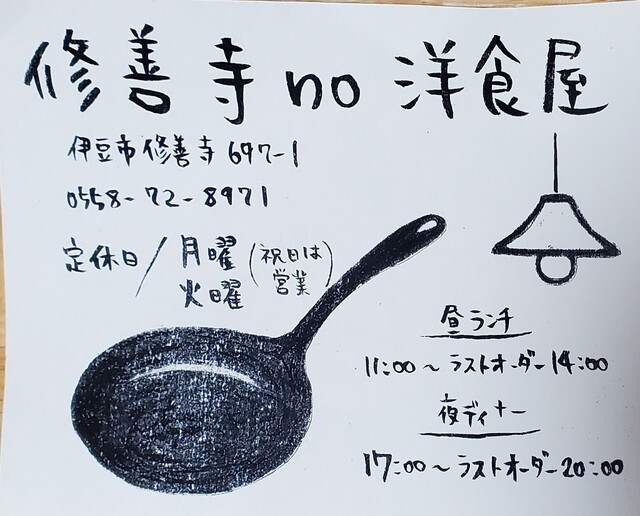 修善寺no洋食屋
伊豆市修善寺697-1
0558-72-8971
定休日/月曜(祝日は
火曜 営業)
昼ランチ
11:00~ラストオーダー14:00
夜ディナー
17:00~ラストオーダー20:00